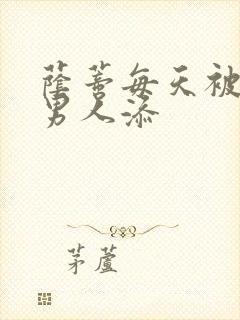 蔭蒂每天被
男人添
茅蘆